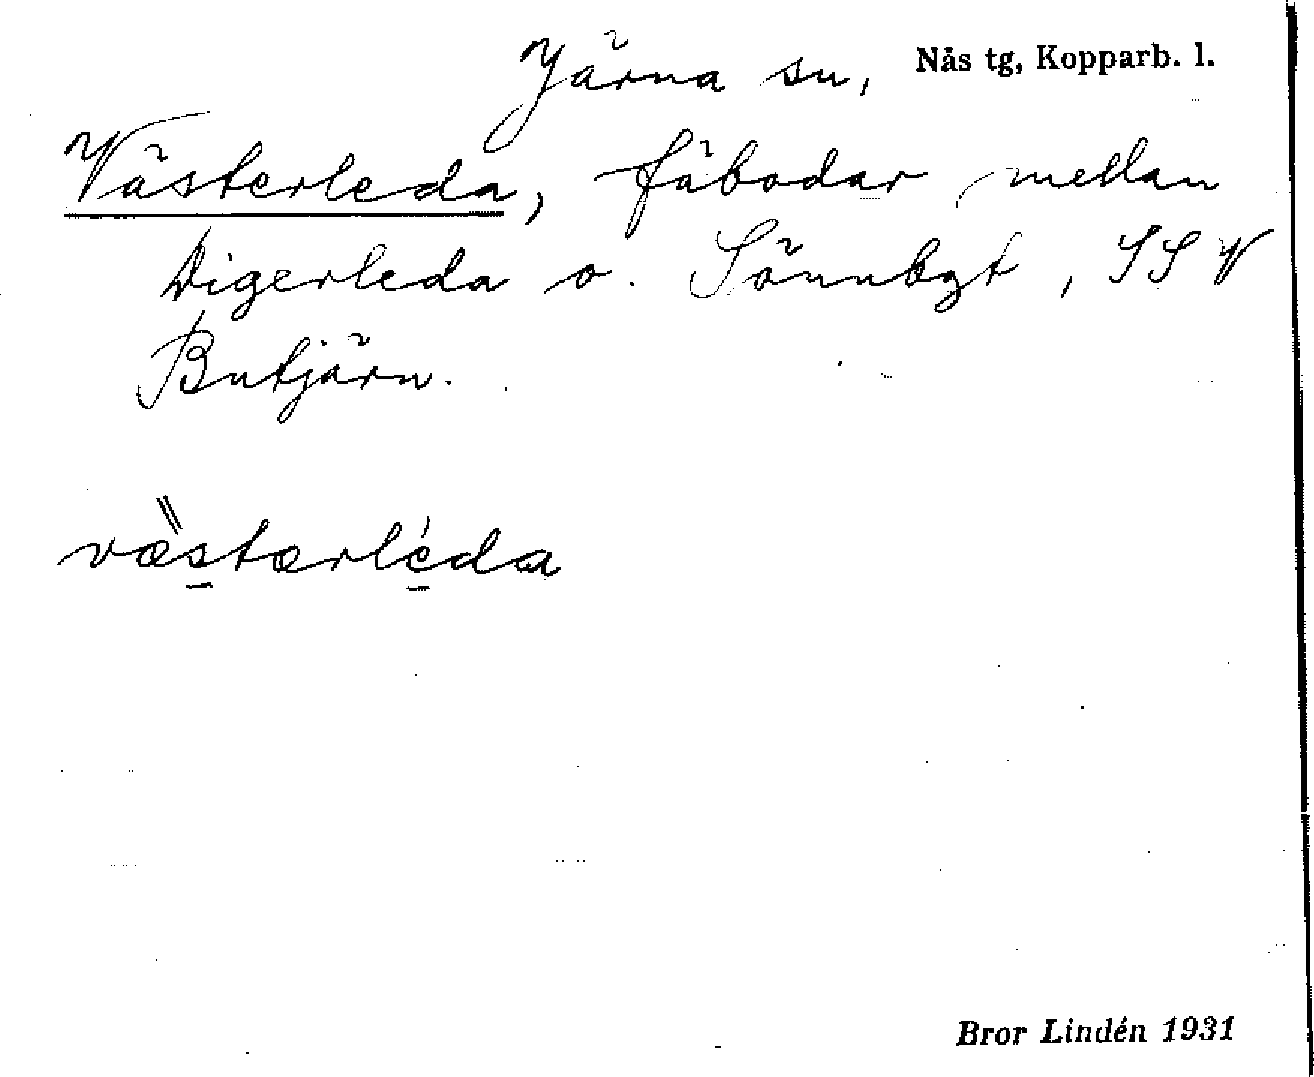 Järna sn, Nås tg, Kopparb. l.
Västerleda, fäbodar mellan
Digerleda o. Sönnbgt, SSV
Butjärn.
væ̀stærléda
Bror Lindén 1931